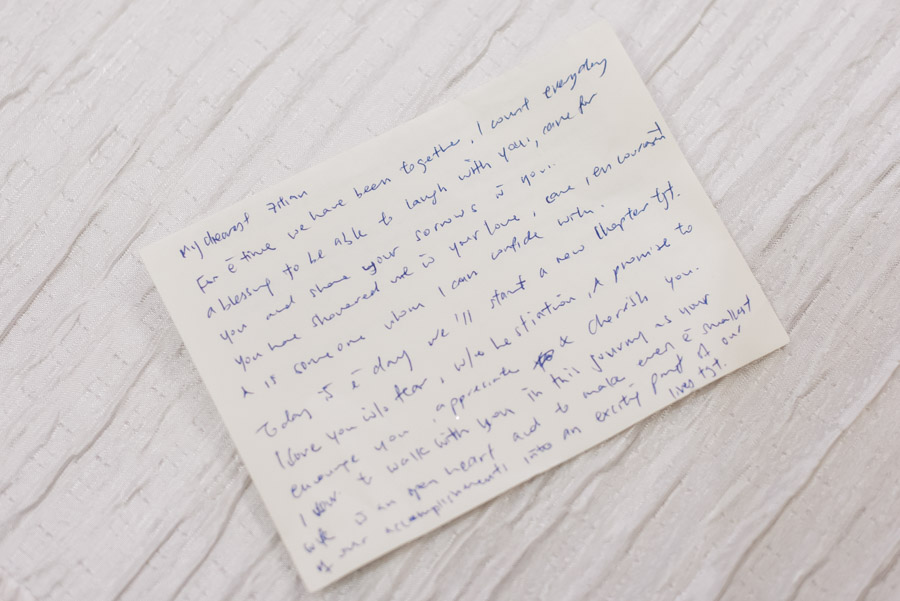 My dearest Zilian
For ē time we have been together, I count everyday
a blessing to be able to laugh with you, care for
you and share your sorrows w̄ you..
You have showered me w̄ your love, care, encouragement
& is someone whom I can confide with.
Today is ē day we'll start a new chapter tgt.
I love you w/o fear, w/o hesitation, & promise to
encourage you, appreciate & cherish you.
I vow to walk with you in this journey as your
wife w̄ an open heart and to make even ē smallest
of our accomplishments into an exciting part of our
lives tgt.